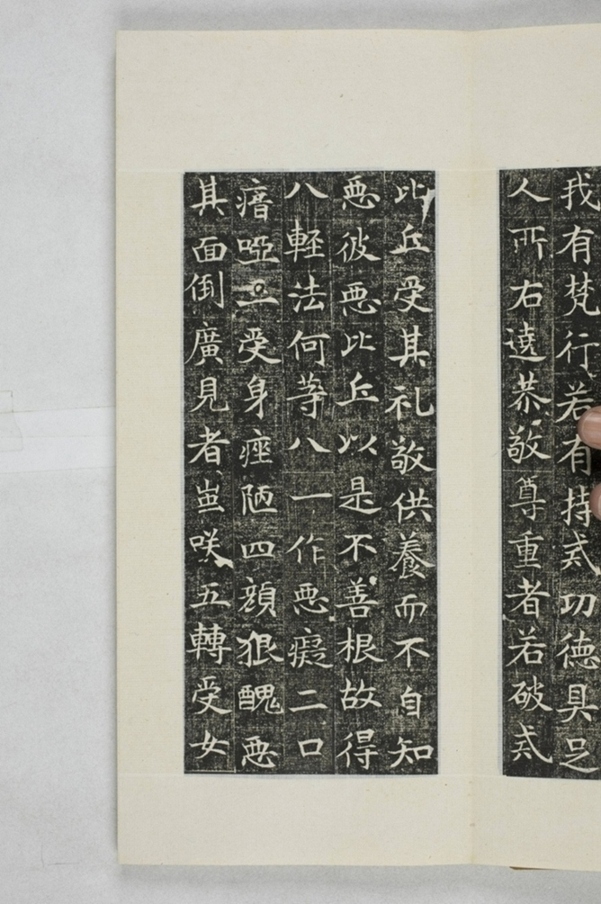 我有梵行若有持戒功德具足
人所右遶恭敬尊重者若破戒
比丘受其礼敬供養而不自知
惡彼惡比丘以是不善根故得
八輕法何等八一作惡癡二口
瘖啞三受身痤陋四顏狠醜惡
其面倒廣見者蚩咲五轉受女